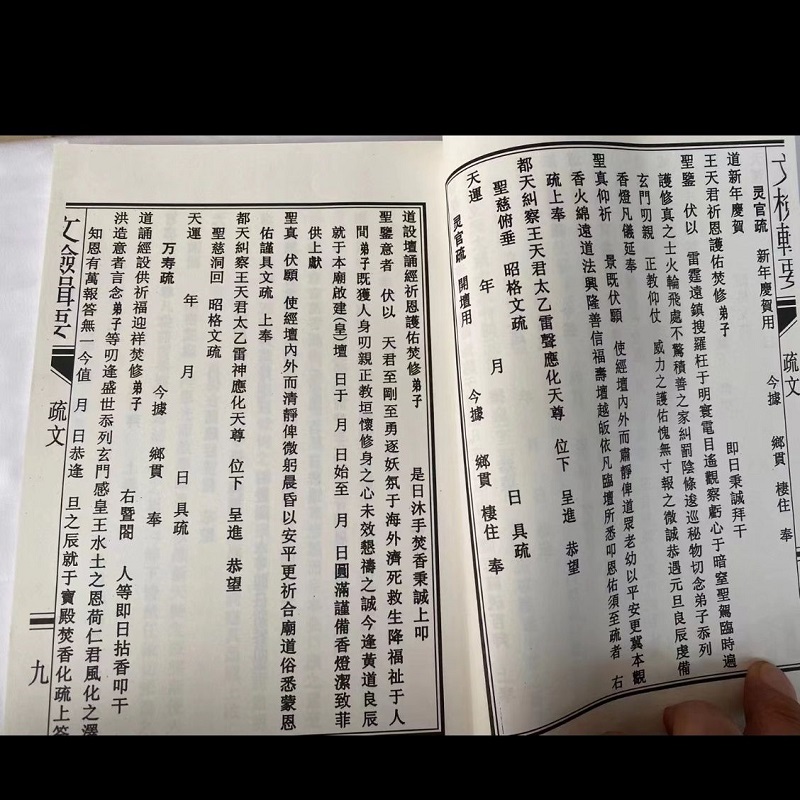 疏文
灵官疏 新年慶賀用
今據 鄉貫 棲住 奉
道新年慶賀
即日秉誠拜干
王天君祈恩護佑焚修弟子
聖鑒 伏以 雷霆遠鎮搜羅枉于明寰電目遙觀察虧心于暗室聖駕臨時遍
護修真之士火輪飛處不驚積善之家糾罰陰條逡巡秘物切念弟子忝列
玄門叨親 正教仰仗 威力之護佑愧無寸報之微誠恭遇元旦良辰虔備
香燈凡儀延奉
聖真仰祈 景既伏願 使經壇內外而肅靜俾道眾老幼以平安更冀本觀
香火綿遠道法興隆善信福壽壇越皈依凡臨壇所悉叩恩佑須至疏者 右
疏上奉
都天糾察王天君太乙雷聲應化天尊 位下 呈進 恭望
聖慈俯垂 昭格文疏
天運 年 月 日 具疏
灵官疏 開壇用
今據 鄉貫 棲住 奉
道設壇誦經祈恩護佑焚修弟子
是日沐手焚香秉誠上叩
聖鑒意者 伏以 天君至剛至勇逐妖氛于海外濟死救生降福祉于人
間弟子既獲人身叨親正教垣懷修身之心未效懇禱之誠今逢黃道良辰
就于本廟啟建(皇)壇 日于 月 日始至 月 日圓滿謹備香燈潔致菲
供上獻
聖真 伏願 使經壇內外而清靜俾微躬晨昏以安平更祈合廟道俗悉蒙恩
佑謹具文疏 上奉
都天糾察王天君太乙雷神應化天尊 位下 呈進 恭望
聖慈洞回 昭格文疏
天運 年 月 日 具疏
万寿疏
今據 鄉貫 奉
道誦經設供祈福迎祥焚修弟子
右暨閤 人等即日拈香叩干
洪造意者言念弟子等叨逢盛世忝列玄門感皇王水土之恩荷仁君風化之澤
知恩有萬報答無一今值 月 日恭逢 旦之辰就于寶殿焚香化疏上答
輯要
疏文
九